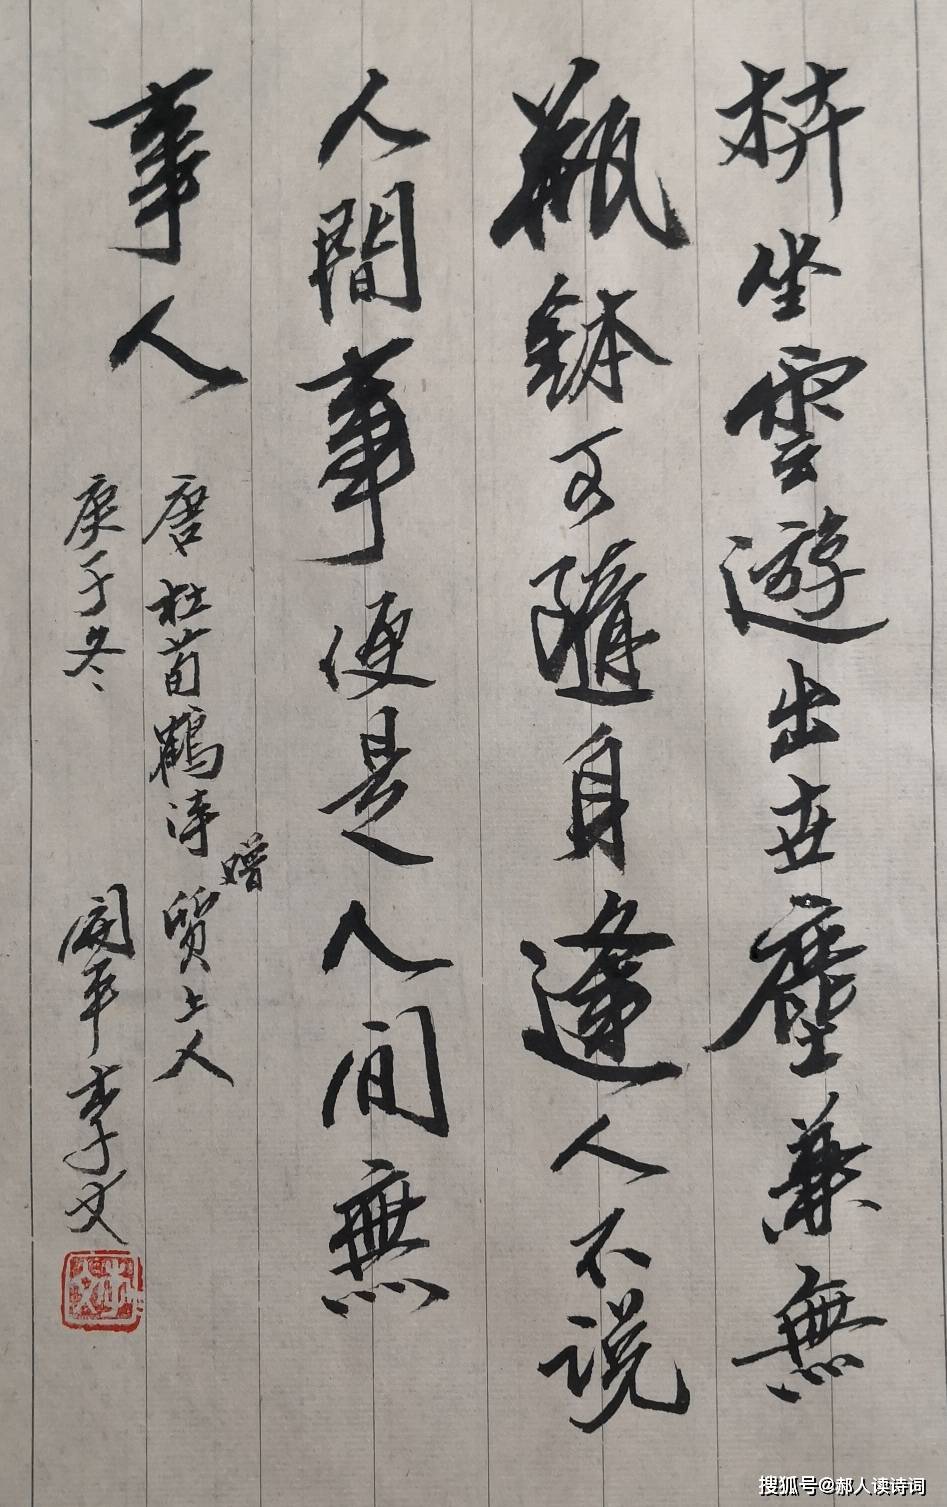 枿坐雲遊出世塵兼無
瓶鉢可隨身逢人不説
人間事便是人间無
事人
唐杜荀鶴诗贈質上人
庚子冬 開平李文
搜狐号@郝人读诗词